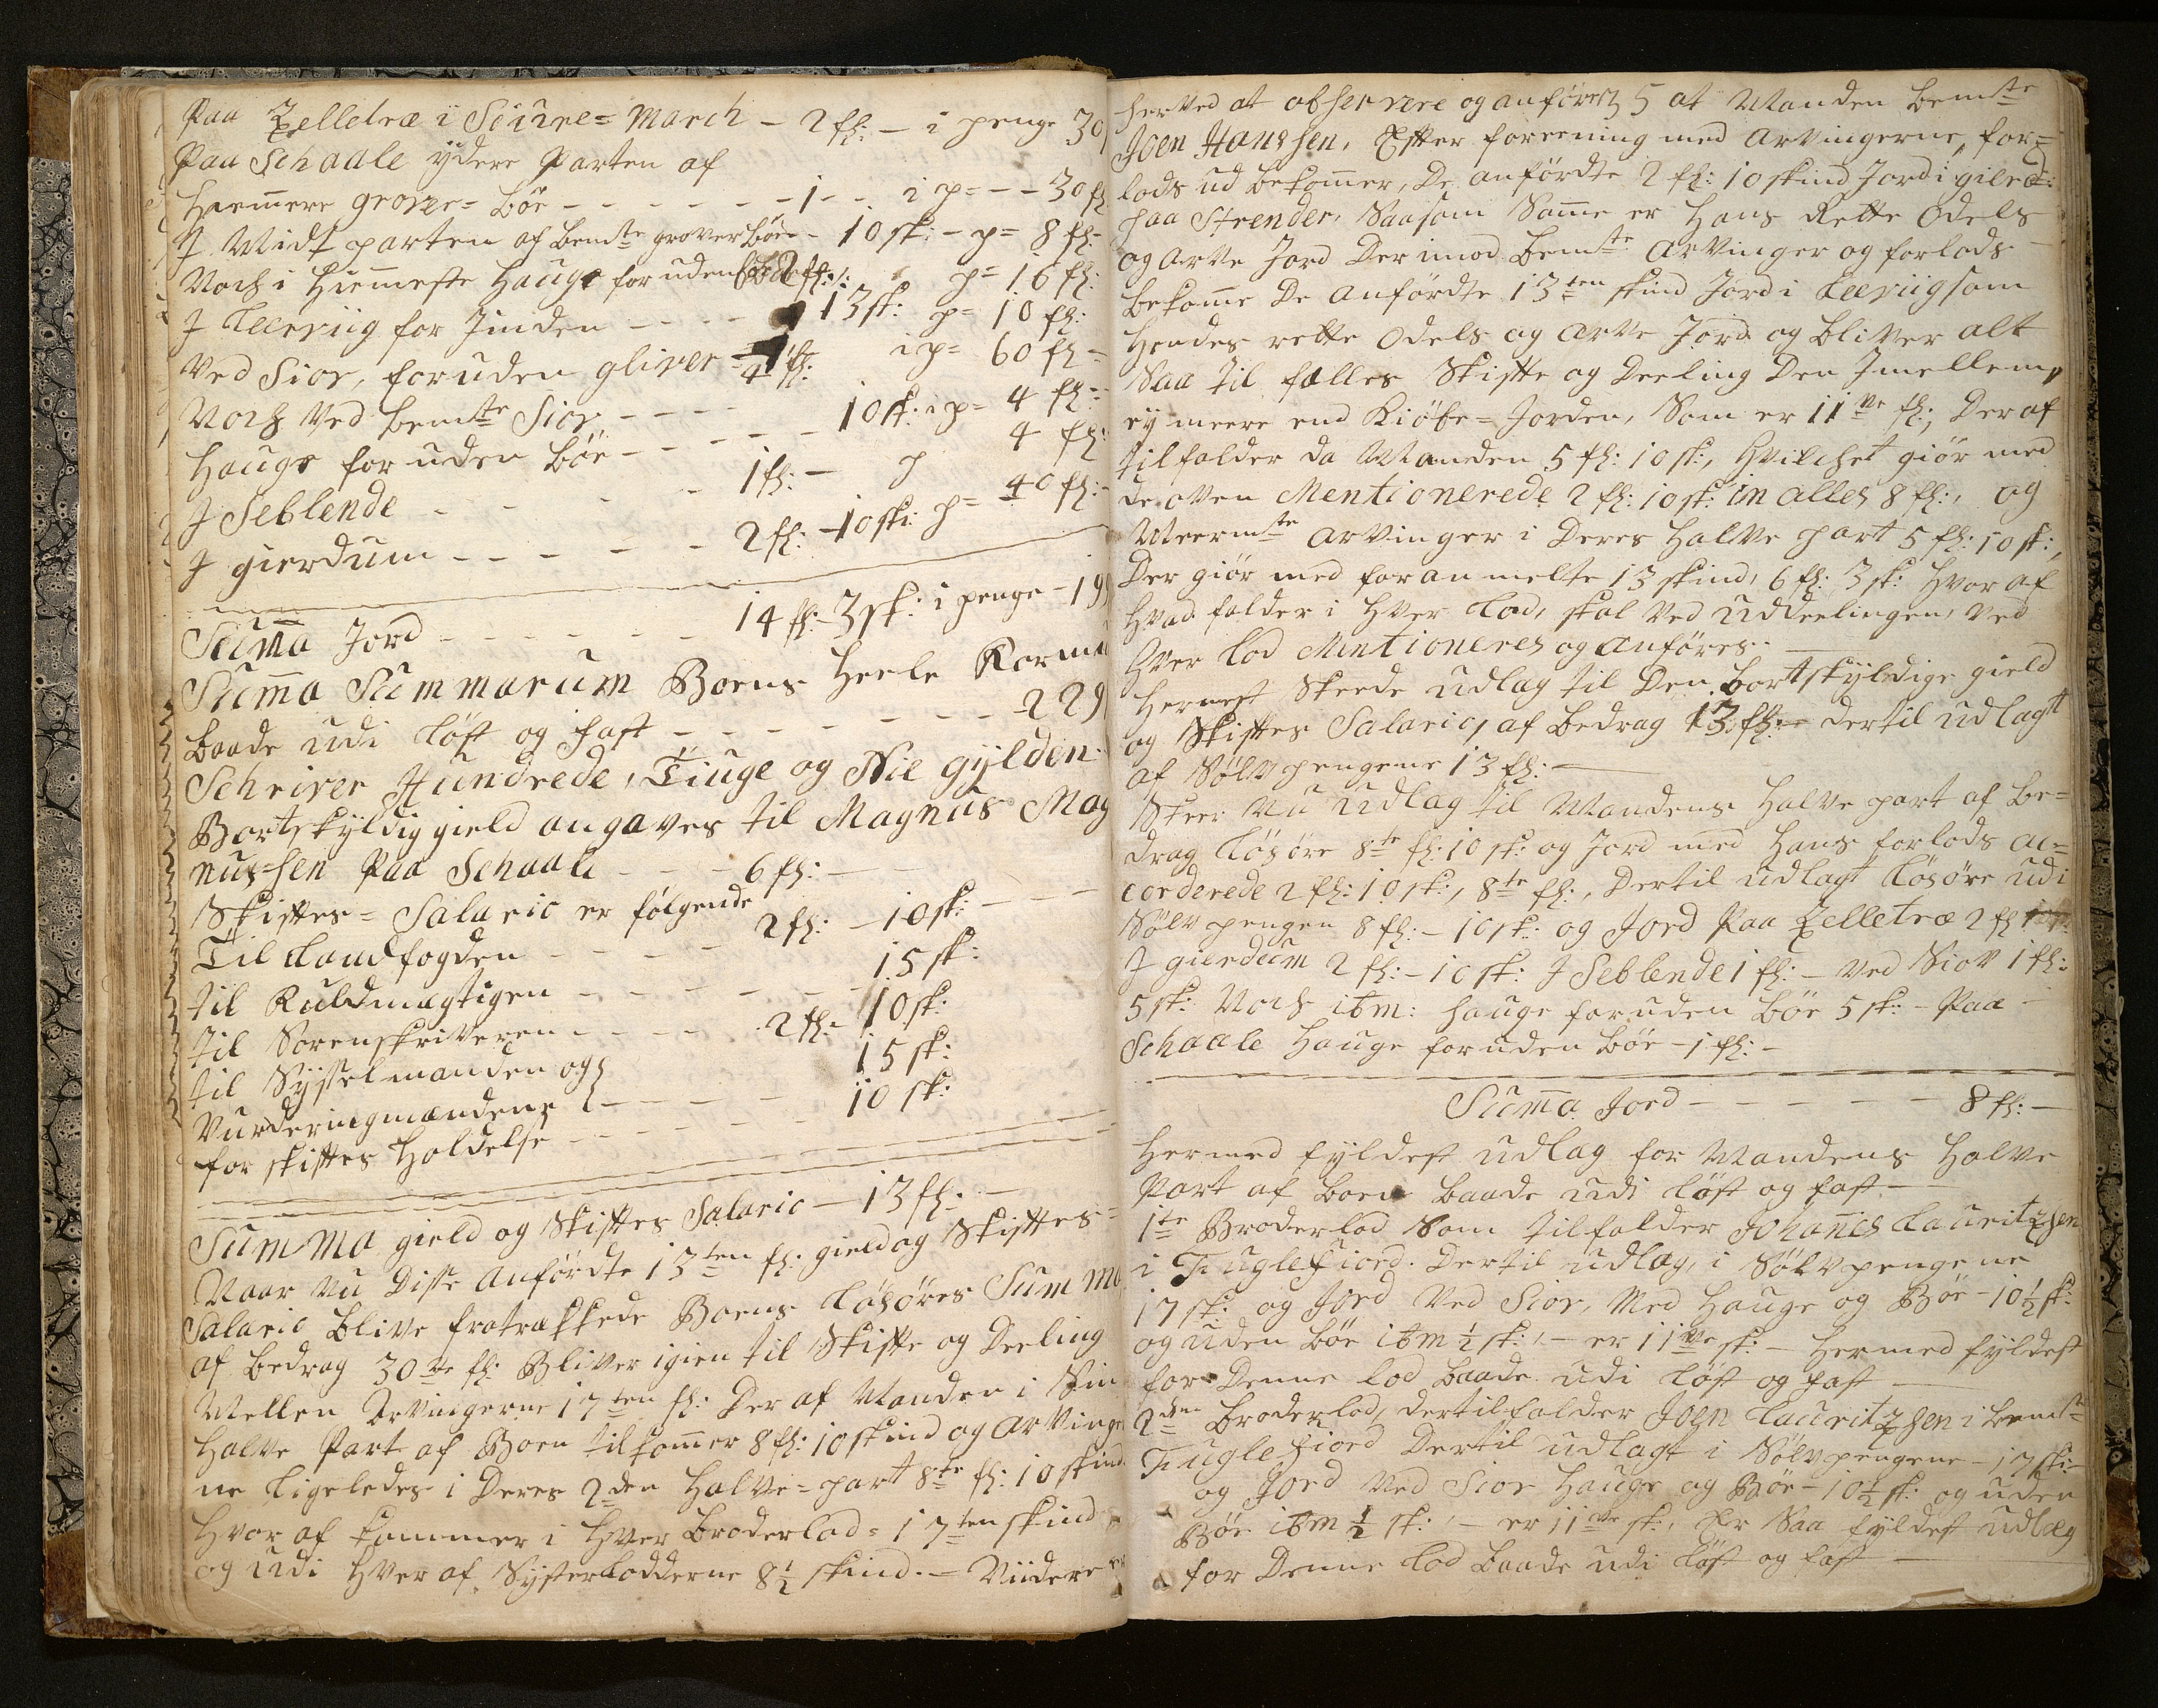 Paa Zelletræ i Suure= March – 2 fl: – i penge 30
Paa Schaale ydere Parten af
Hæmere grover= Böe – – – – – – 1 – – i p= – – 30 fl
I Midt parten af bemte grover Böe – 10 sk: – p= 8 fl:
Noch i Hiemeste Hauge foruden p= 16 fl:
I Leervüg for Inden – – – – 13 sk: p= 10 fl:
Ved Sior, foruden gliver = i p= 60 fl –
Noch Ved bemte Sior – – – – 10 sk: i p= 4 fl:
Hauge foruden Böe – – – – – – 4 fl:
I Seblende – – – – – 1 fl: – p 40 fl:
I gierdum – – – – – 2 fl: – 10 sk: p=
Suma Jord – – – – – – 14 fl: 3 sk: i penge – 19
Suma Summarum Boens Heele Form
baade udi löst og fast – – – – – – – 229
Schriver Hundrede, Tiuge og Nie gylden
Bortskÿldig gield angaves til Magnus Mag
nus=sen Paa Schaale – – – 6 fl: –
Skiftes= Salario er følgende
Til Landfogden – – – – – 2 fl: – 10 sk: – –
til Fuldmægtigen – – – – – – – 15 sk:
til Sorenskriveren – – – – 2 fl: – 10 sk:
til Sÿsselmanden og
Vurderingmændene – – – – – 15 sk:
for skiftes Holdelse – – – – – – 10 sk:
Summa gield og Skiftes Salario – 13 fl: –
Naar Nu Disse Anførdte 13ten fl: gield og Skiftes=
Salario blive fratrækkede Boens Løsöres Summa
af bedrag 30ve fl: Bliver igien til Skifte og Deeling
Mellen Arvingerne 17ten fl: Der af Manden i Sin
Halve Part af Boen tilkomer 8 fl: 10 skind og Arvinge
ne ligeledes i Deres 2den Halve= part 8te fl: 10 skind
Hvor af kommer i Hver Broderlod= 17ten skind
og udi Hver af Sÿsterlodderne 8½ skind. – Viidere er
herved at observere og anføres at Manden bemte
Joen Hanssen, Efter foreening med Arvingerne, for=
lods ud bekomer, De anfördte 2 fl: 10 skind Jord i gierd:
paa Strender, Saasom Same er Hans Rette Odels
og Arve Jord Der imod bemte Arvinger og forlods
bekome De Anfördte 13ten skind Jord i Leervüg som
Hendes rette Odels og Arve Jord og bliver alt
Saa til fælles Skifte og Deeling Den Imellem,
eÿ meere end Kiöbe= Jorden, Som er 11ve fl:, Der af
tilfalder da Manden 5 fl: 10 sk:, Hvilchet giör med
de oven Mentionerede 2 fl: 10 sk: in alles 8 fl:, og
Meermte Arvinger i Deres Halve part 5 fl: 10 sk:,
Der giör med foran melte 13 skind, 6 fl: 3 sk: Hvor af
Hvad falder i Hver Lod, skal Ved Uddeelingen, Ved
Hver Lod Mentioneres og anføres. –
Hernest Skeede udlag til Den bortskÿldige gield
og Skiftes Salario, af bedrag 13 fl: – Dertil udlagt
af Sölv pengene 13 fl: –
Skeer Nu udlag til Mandens Halve part af be=
drag Lösöre 8te fl: 10 sk: og Jord med Hans forlods ac=
corderede 2 fl: 10 sk:, 8te fl:, Dertil udlagt Lösöre udi
Sölv pengen 8 fl: – 10 sk: og Jord Paa Zelletræ 2 fl
I gierdum 2 fl: – 10 sk: I Seblende 1 fl: – Ved Siov 1 fl:
5 sk: Noch itm: Hauge foruden Böe 5 sk: – Paa –
Schaale Hauge foruden Böe – 1 fl: –
Suma Jord – – – – – 8 fl: –
Hermed fÿldest udlag for Mandens Halve
Part af boen baade udi löst og fast –
1te Broderlod Som tilfalder Johanes Lauritzsen
i Fuglefiord. Dertil udlag, i Sölvpengene
17 sk: og Jord Ved Sior, Med Hauge og Böe – 10½ sk:
og uden böe itm ½ sk:, – er 11ve sk: – Hermed fÿldest
for Denne lod baade udi löst og fast –
2den Broderlod, dertilfalder Joen Lauritzsen i bemte
Fuglefiord Dertil udlagt i Sölvpengene – 17 sk:
og Jord Ved Sior Hauge og Böe – 10½ sk: og uden
Böe itm ½ sk:, – er 11ve sk:, Er Saa fÿldest udlæg
for Denne lod baade udi löst og fast –